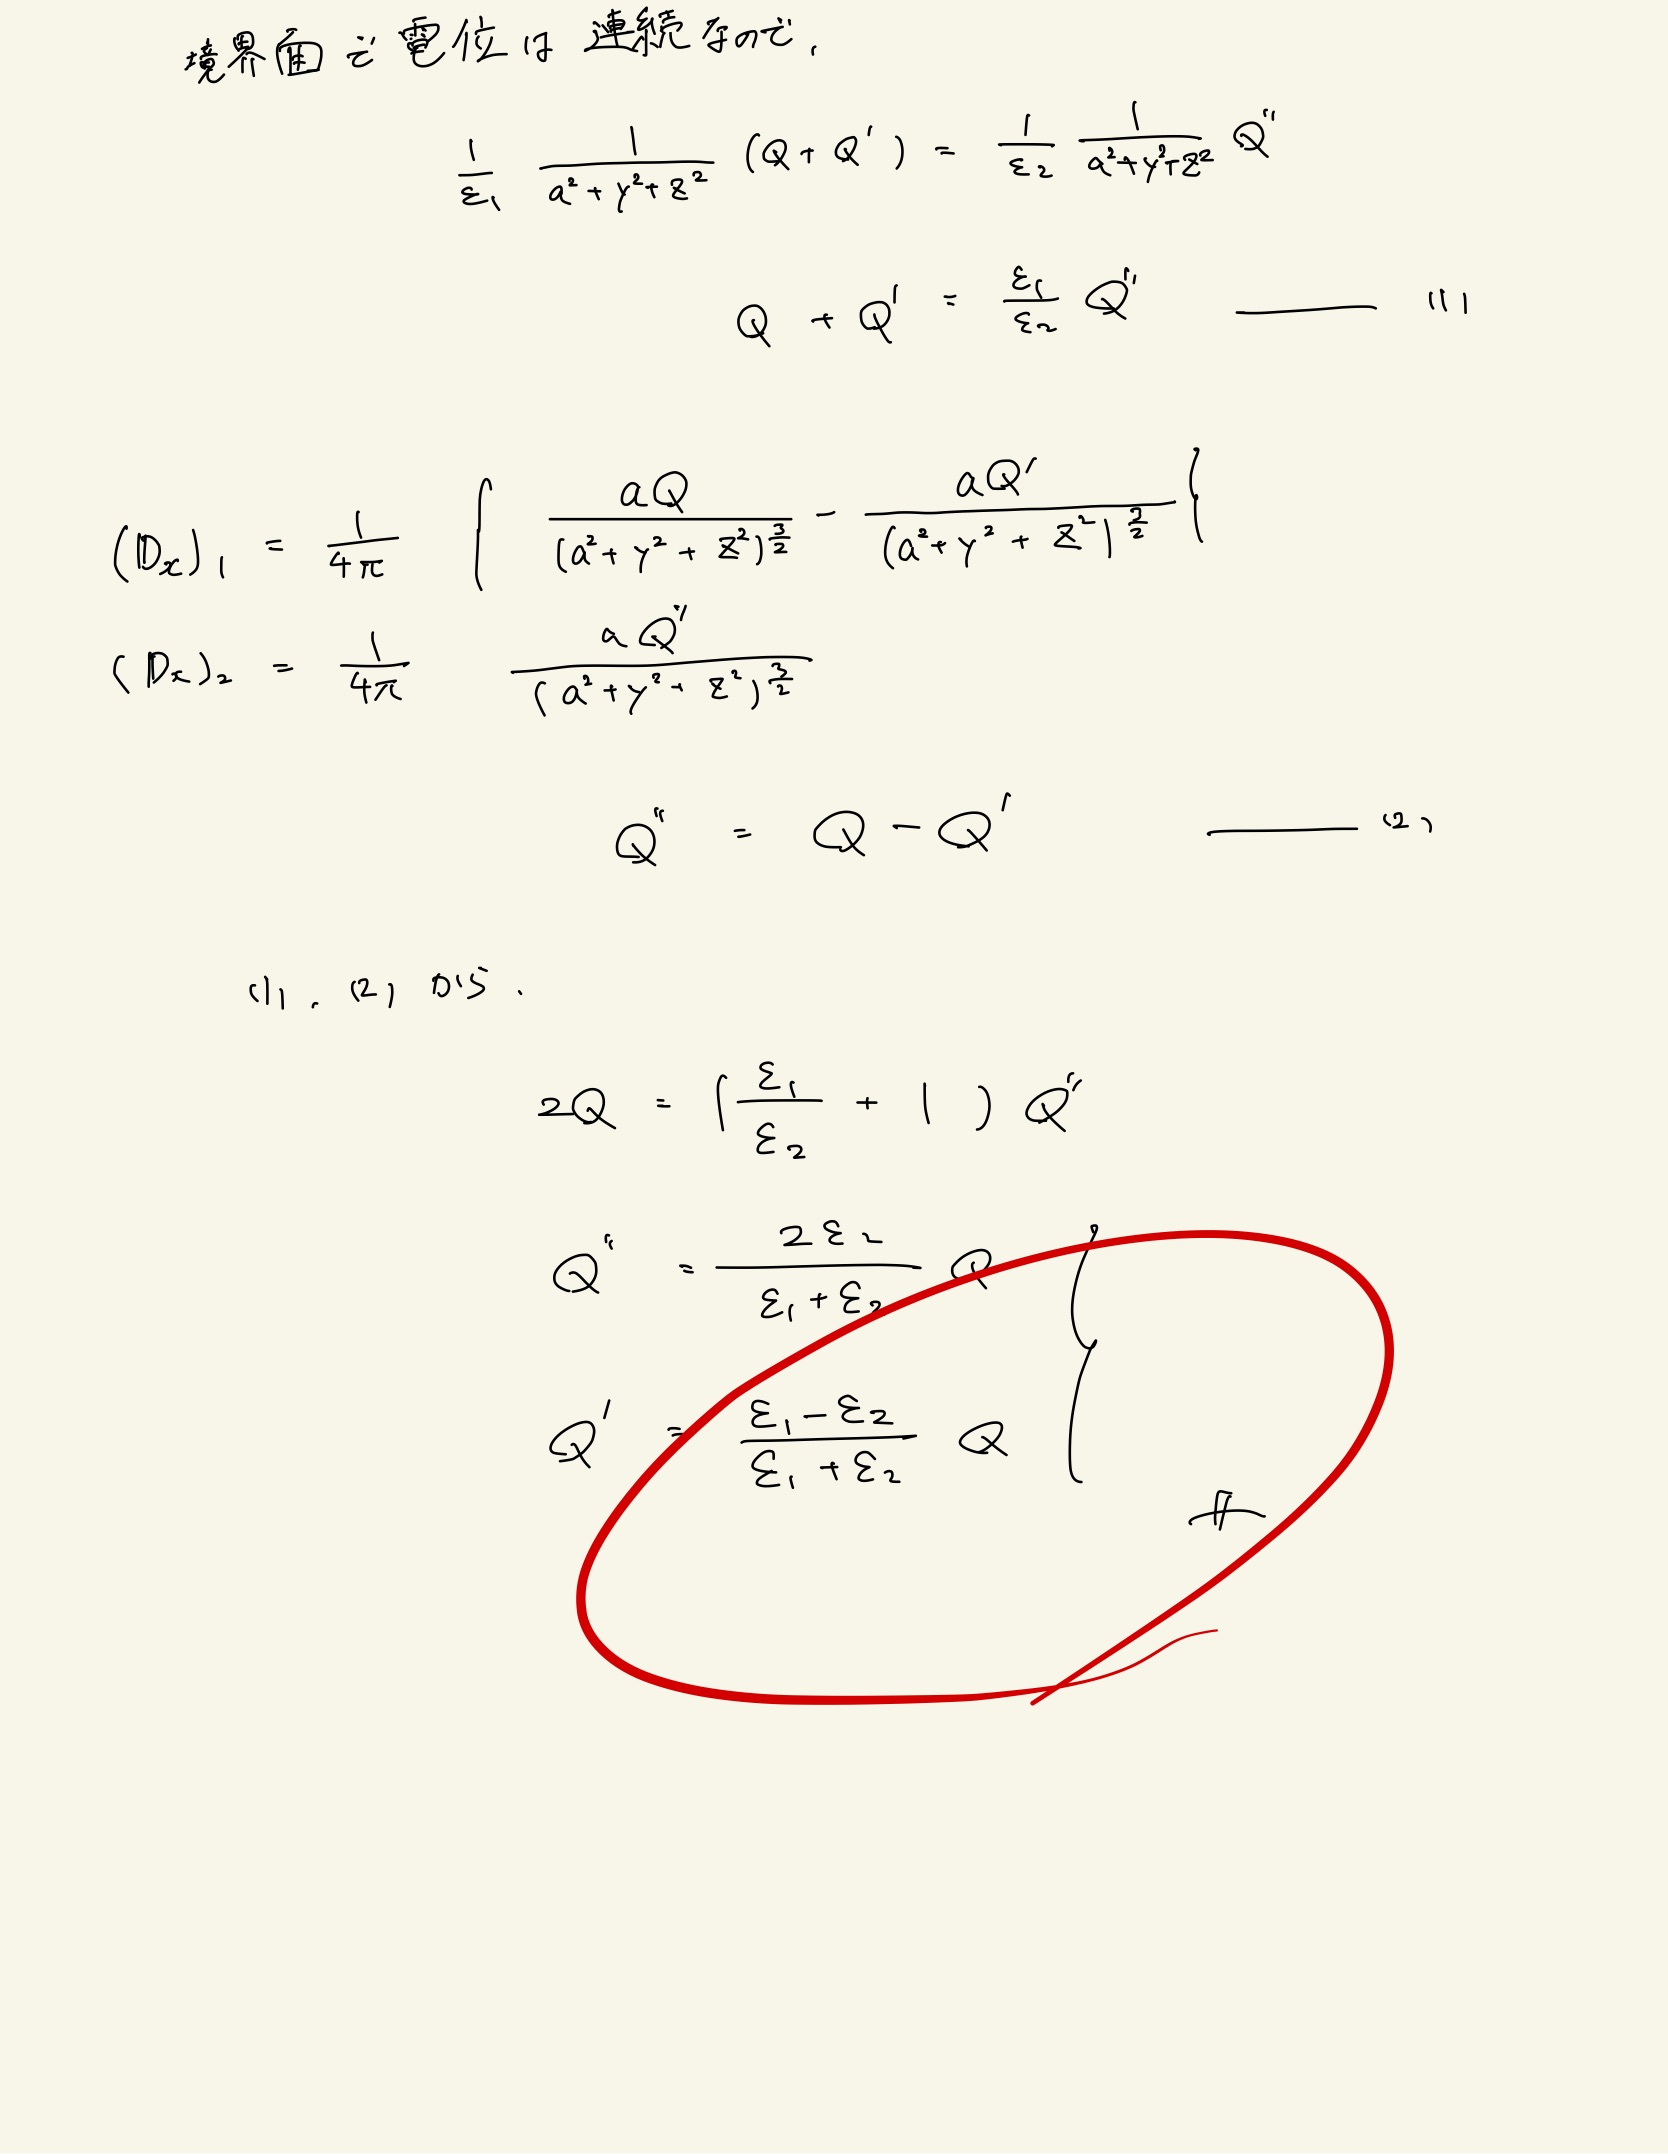 境界面で電位は連続なので,
1/ε₁ 1/(a²+y²+z²) (Q+Q') = 1/ε₂ 1/(a²+y²+z²) Q''
Q + Q' = ε₁/ε₂ Q'' —— (1)
(Dx)₁ = 1/4π { aQ/(a²+y²+z²)^{3/2} − aQ'/(a²+y²+z²)^{3/2} }
(Dx)₂ = 1/4π aQ''/(a²+y²+z²)^{3/2}
Q'' = Q − Q' —— (2)
(1), (2) から.
2Q = (ε₁/ε₂ + 1) Q''
Q'' = 2ε₂/(ε₁+ε₂) Q
Q' = (ε₁−ε₂)/(ε₁+ε₂) Q